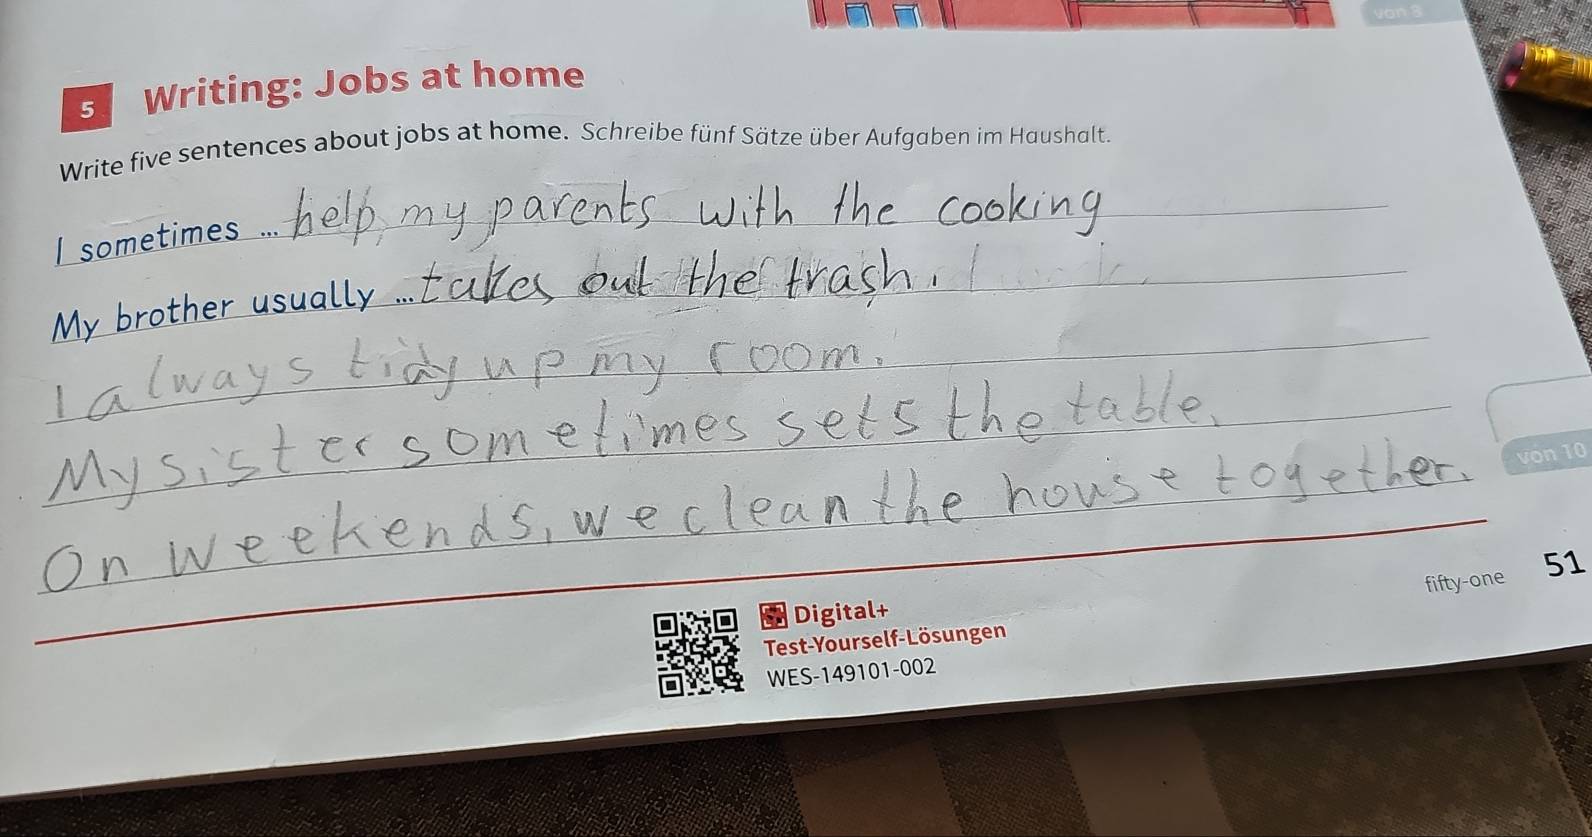 von 8
5 Writing: Jobs at home
Write five sentences about jobs at home. Schreibe fünf Sätze über Aufgaben im Haushalt.
I sometimes ... help my parents with the cooking
My brother usually ... takes out the trash.
I always tidy up my room.
My sister sometimes sets the table.
On weekends, we clean the house together.
von 10
fifty-one 51
Digital+
Test-Yourself-Lösungen
WES-149101-002